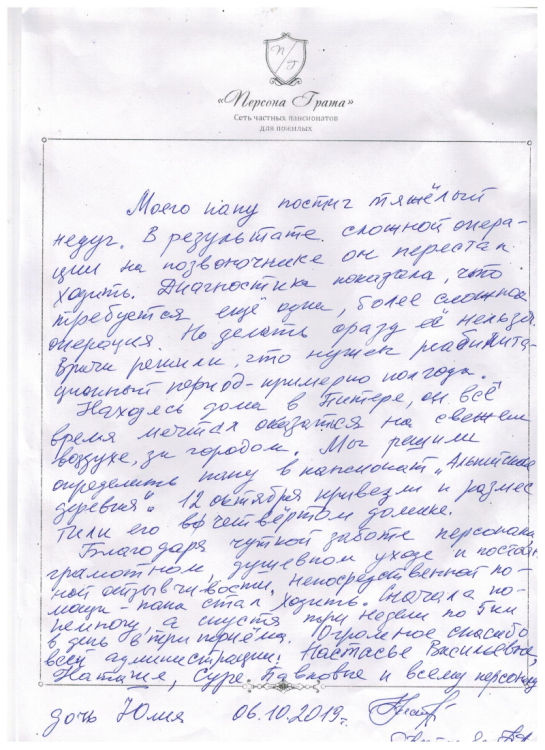 П/Г
«Персона Грата»
Сеть частных пансионатов
для пожилых
Моего папу постиг тяжёлый
недуг. В результате сложной опера-
ции на позвоночнике он перестал
ходить. Диагностика показала, что
требуется ещё одна, более сложная
операция. Но делать сразу её нельзя.
Врачи решили, что нужен реабилита-
ционный период-примерно полгода.
Находясь дома в Питере, он всё
время мечтал оказаться на свежем
воздухе, за городом. Мы решили
определить папу в пансионат „Альпийская
деревня". 12 октября привезли и размес
тили его в четвёртом домике.
Благодаря чуткой заботе персонала,
грамотном, душевном уходе и постоян
ной отзывчивости, непосредственной по-
мощи - папа стал ходить. Сначала по-
немногу, а спустя три недели по 1 км
в день в три приёма. Огромное спасибо
всей администрации: Настасье Васильевне,
Наталие, Павловне и всему персоналу
дочь Юлия 06.10.2019г.